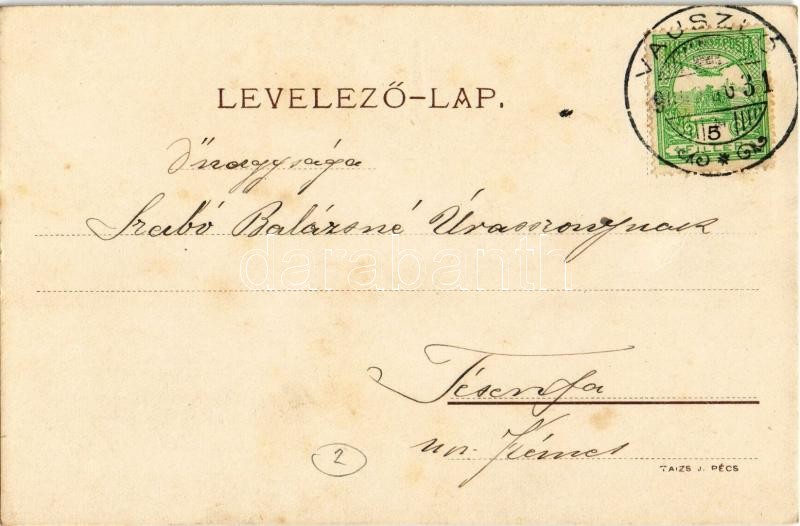 VAJSZLÓ
31
5
FILLÉR
LEVELEZŐ-LAP.
Őnagysága
Szabó Balázsné Úrasszonynak
darabanth
Tésenfa
up. Kémes
2
TAIZS J. PÉCS